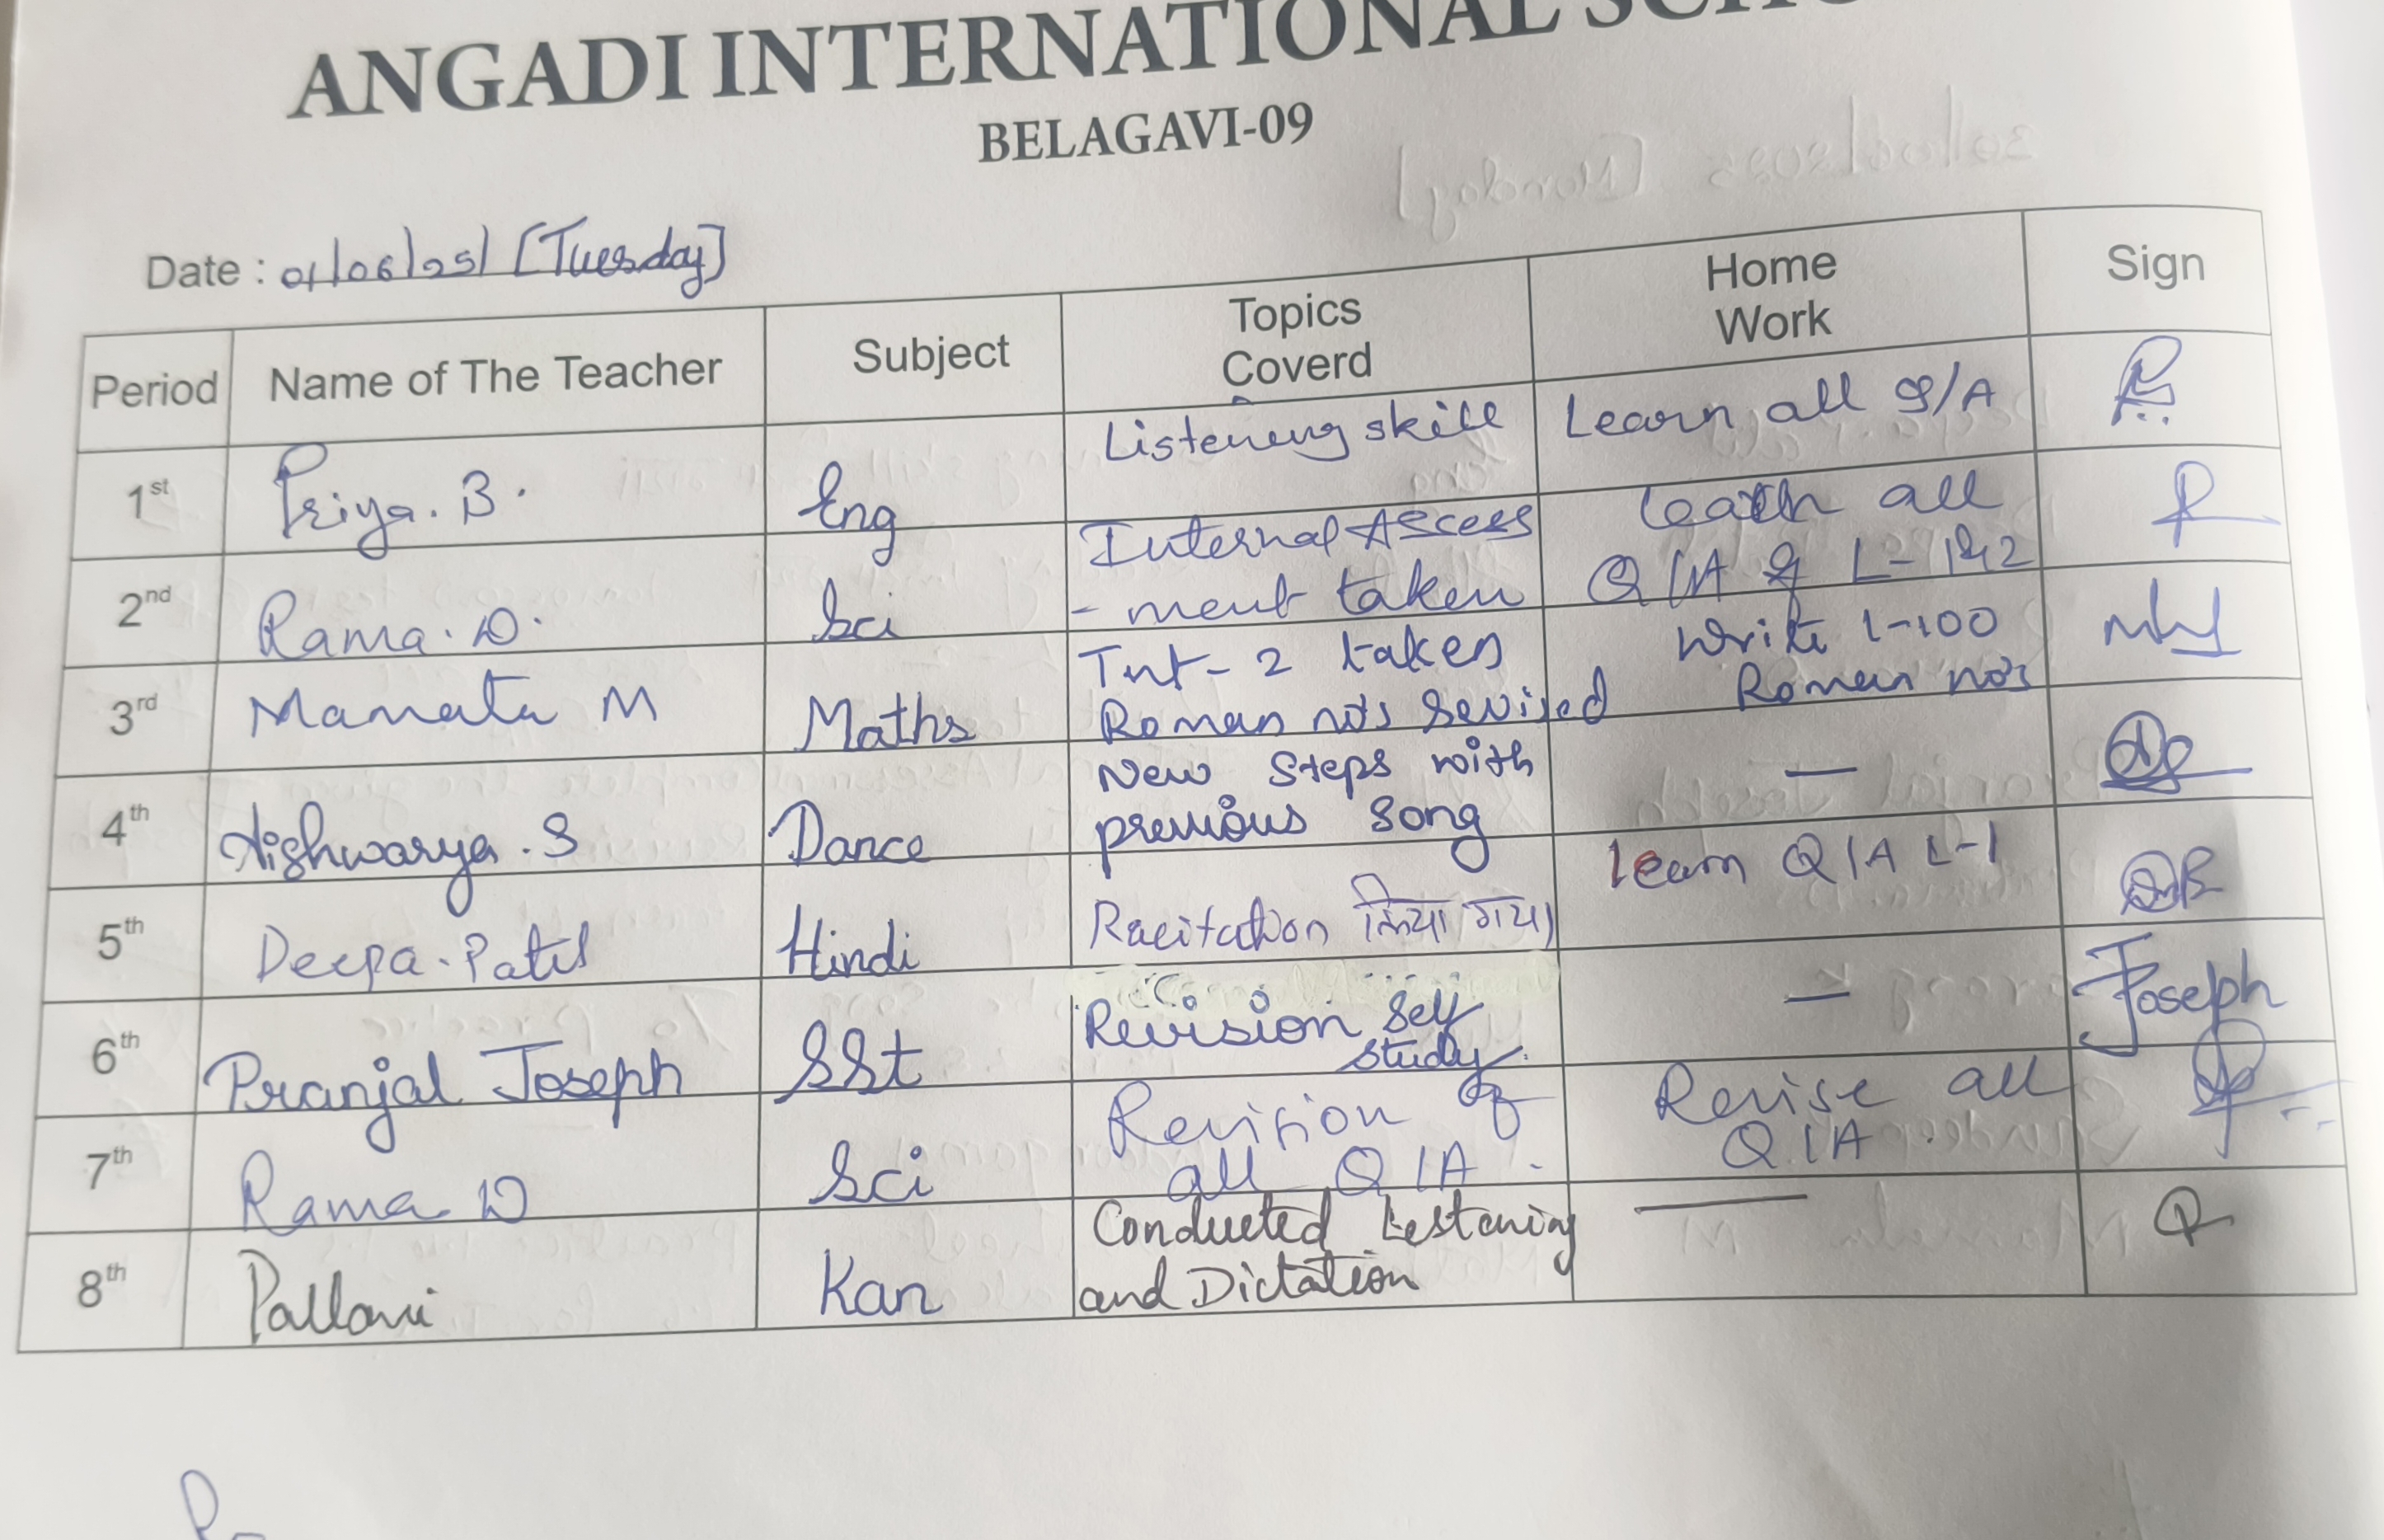 ANGADI INTERNATIONAL
BELAGAVI-09
Date : 01/06/25/ [Tuesday]
Period Name of The Teacher Subject Topics Coverd Home Work Sign
1st Priya. B. Eng Listening skill Learn all Q/A
2nd Rama. D. Sci Internal Assess
- ment taken Learn all
Q/A of L-1&2
3rd Mamata M Maths Int-2 taken
Roman no's revised Write 1-100
Roman no's
4th Aishwarya. S Dance New Steps with
previous song —
5th Deepa. Patil Hindi Racitation किया गया। learn Q/A L-1
6th Pranjal Joseph SSt Revision Self
study. — Joseph
7th Rama D Sci Revision of
all Q/A. Revise all
Q/A.
8th Pallavi Kan Conducted Listening
and Dictation —